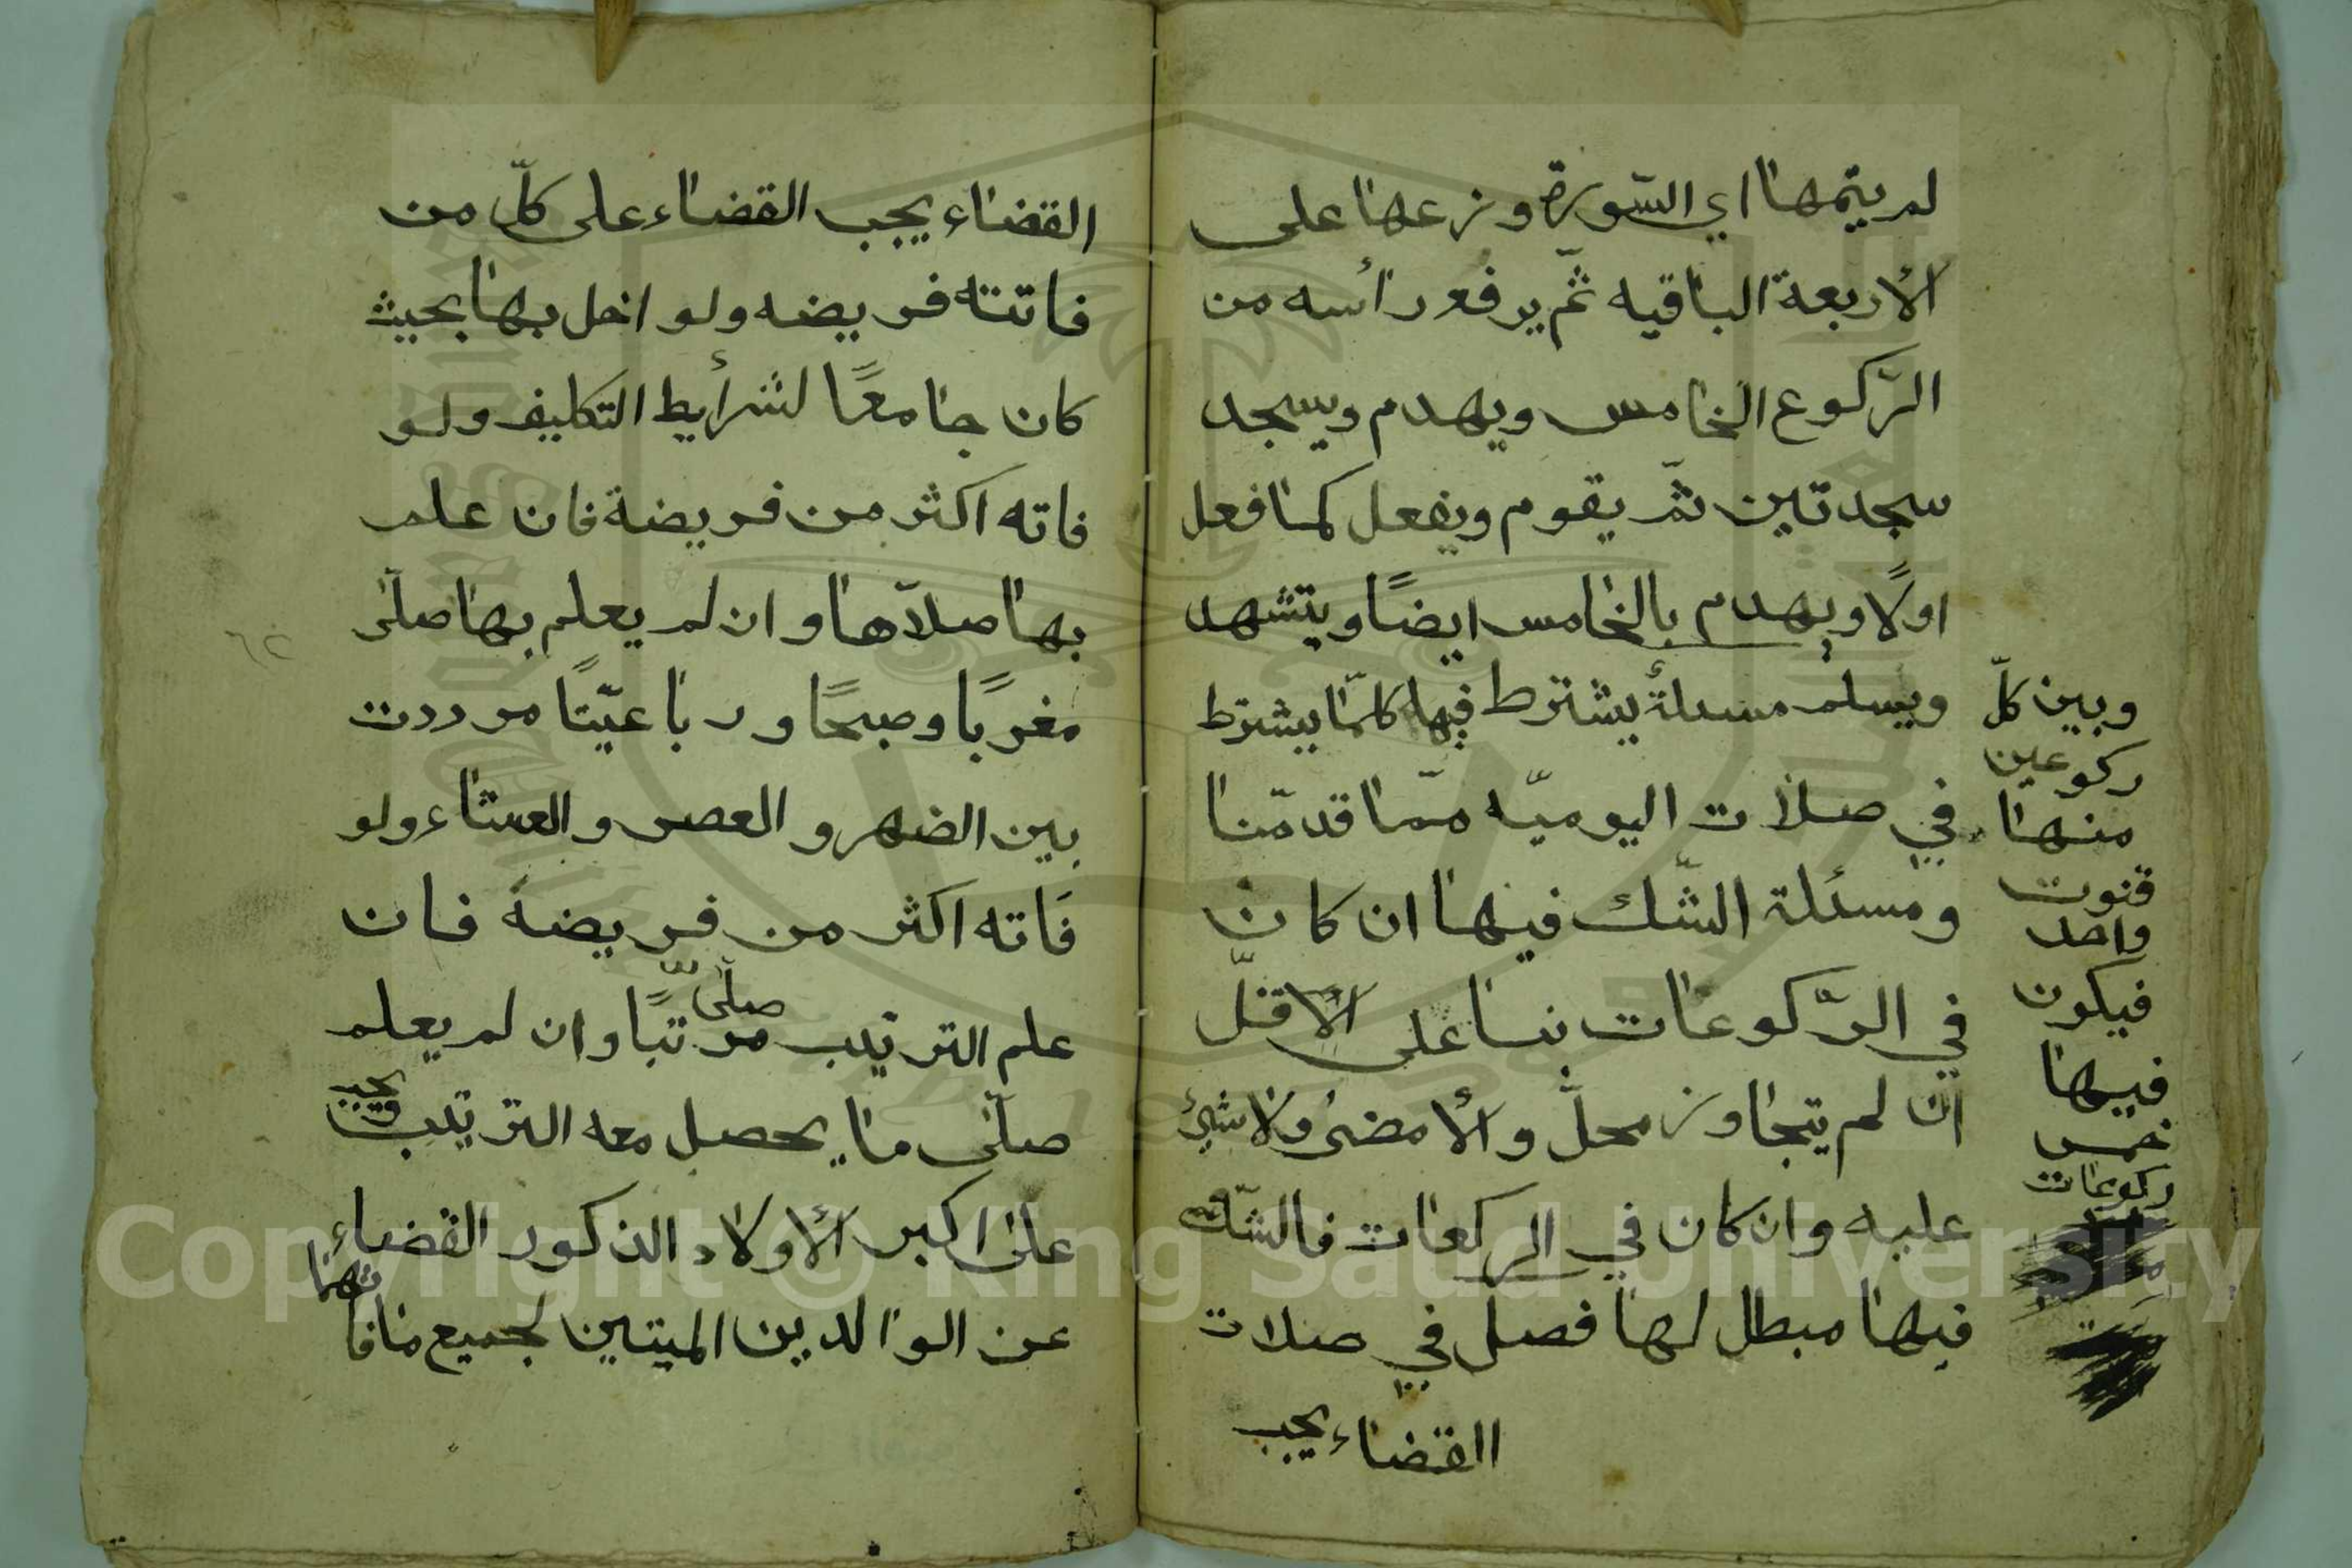 لم يتمها اي السّورة وزعها على
الأربعة الباقيه ثمّ يرفع رأسه من
الرّكوع الخامس ويهدم ويسجد
سجدتين ثمّ يقوم ويفعل كما فعل
اولًا ويهدم بالخامس ايضًا ويتشهد
ويسلم مسئلةٌ يشترط فيها كلمّا يشترط
في صلات اليوميّه ممّا قدمّنا
ومسئلة الشّك فيها ان كان
في الرّكوعات بنا على الأقلّ
ان لم يتجاوز محلّ والأ مضى ولا شيئ
عليه وان كان في الركعات فالشّك
فيها مبطل لها فصل في صلات
القضاء يجب
وبين كلّ
ركوعين
منها
قنوت
واحد
فيكون
فيها
خمس
ركوعات
القضاء يجب القضاء على كلّ من
فاتته فريضه ولو اخل بها بحيث
كان جامعًا لشرأيط التكليف ولو
فاته اكثر من فريضة فان علم
بها صلاّها وان لم يعلم بها صلّى
مغربًا وصبحًا ورباعيّتًا مرددت
بين الضهر والعصر والعشاء ولو
فاته اكثر من فريضة فان
علم الترتيب صلّى مرتّبًا وان لم يعلم
صلّى ما يحصل معه الترتيب ويجب
على اكبر الأولاد الذكور القضاء
عن الوالدين الميتين لجميع ما فاتهما
٦٢
Copyright © King Saud University